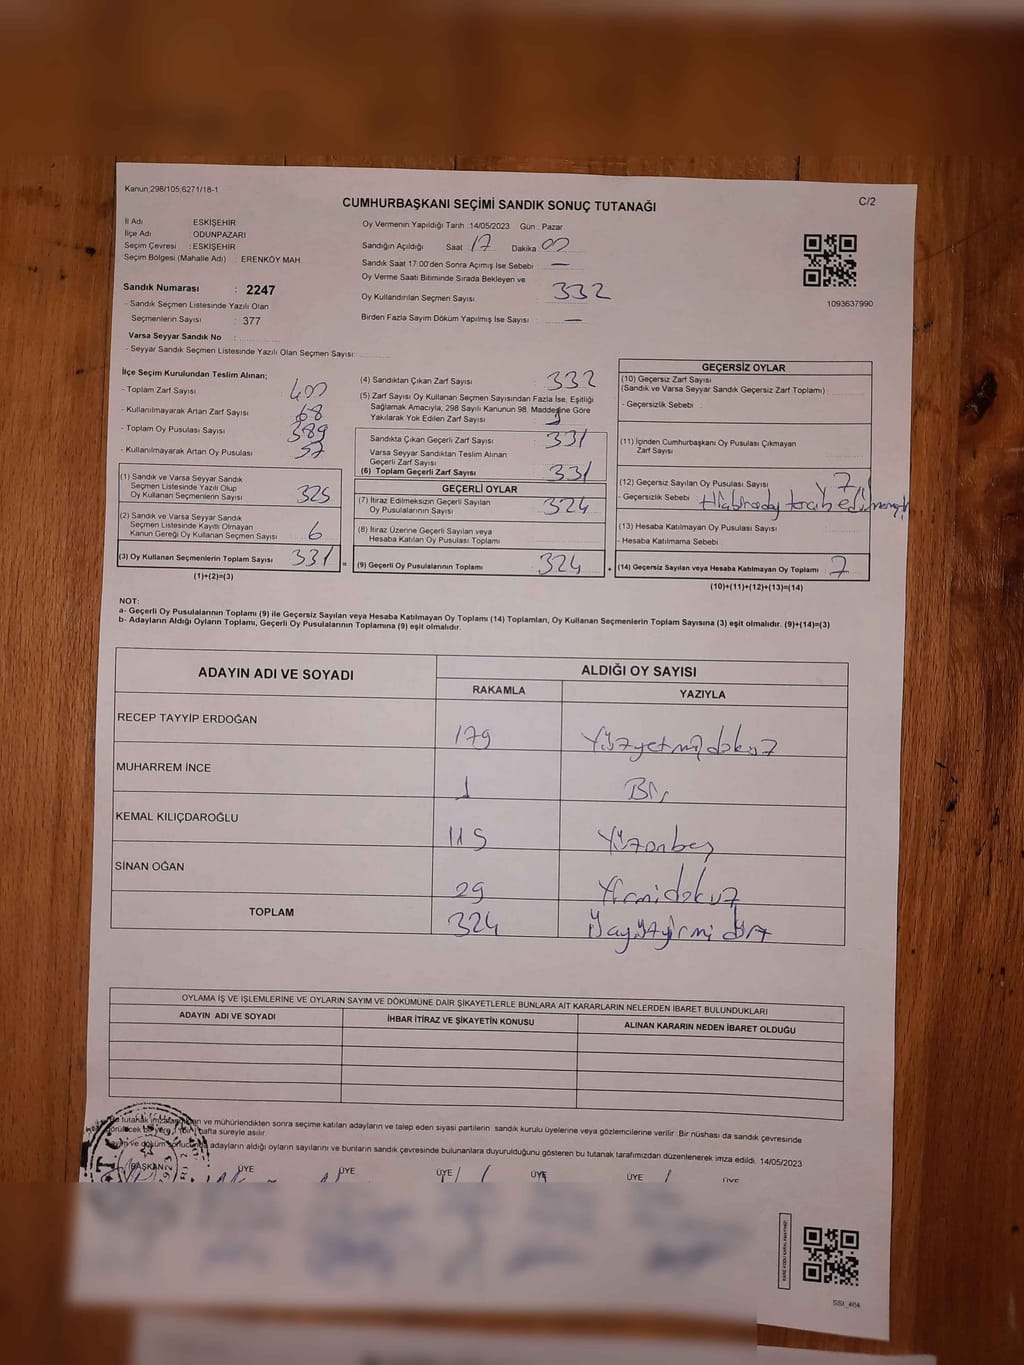 Kanun;298/105;6271/18-1
CUMHURBAŞKANI SEÇİMİ SANDIK SONUÇ TUTANAĞI
C/2
İl Adı ESKİŞEHİR
İlçe Adı ODUNPAZARI
Seçim Çevresi : ESKİŞEHİR
Seçim Bölgesi (Mahalle Adı) : ERENKÖY MAH.
Sandık Numarası : 2247
- Sandık Seçmen Listesinde Yazılı Olan
Seçmenlerin Sayısı : 377
Varsa Seyyar Sandık No :
- Seyyar Sandık Seçmen Listesinde Yazılı Olan Seçmen Sayısı:
Oy Vermenin Yapıldığı Tarih :14/05/2023 Gün : Pazar
Sandığın Açıldığı Saat 17 Dakika 00
Sandık Saat 17:00'den Sonra Açımış İse Sebebi —
Oy Verme Saati Bitiminde Sırada Bekleyen ve
Oy Kullandırılan Seçmen Sayısı 332
Birden Fazla Sayım Döküm Yapılmış İse Sayısı —
1093637990
İlçe Seçim Kurulundan Teslim Alınan;
- Toplam Zarf Sayısı : 400
- Kullanılmayarak Artan Zarf Sayısı : 68
- Toplam Oy Pusulası Sayısı : 389
- Kullanılmayarak Artan Oy Pusulası : 57
(1) Sandık ve Varsa Seyyar Sandık
Seçmen Listesinde Yazılı Olup
Oy Kullanan Seçmenlerin Sayısı : 325
(2) Sandık ve Varsa Seyyar Sandık
Seçmen Listesinde Kayıtlı Olmayan
Kanun Gereği Oy Kullanan Seçmen Sayısı : 6
(3) Oy Kullanan Seçmenlerin Toplam Sayısı : 331 =
(1)+(2)=(3)
(4) Sandıktan Çıkan Zarf Sayısı : 332
(5) Zarf Sayısı Oy Kullanan Seçmen Sayısından Fazla İse, Eşitliği
Sağlamak Amacıyla; 298 Sayılı Kanunun 98. Maddesine Göre
Yakılarak Yok Edilen Zarf Sayısı : 1
Sandıkta Çıkan Geçerli Zarf Sayısı : 331
Varsa Seyyar Sandıktan Teslim Alınan
Geçerli Zarf Sayısı
(6) Toplam Geçerli Zarf Sayısı : 331
GEÇERLİ OYLAR
(7) İtiraz Edilmeksizin Geçerli Sayılan
Oy Pusulalarının Sayısı : 324
(8) İtiraz Üzerine Geçerli Sayılan veya
Hesaba Katılan Oy Pusulası Toplamı :
(9) Geçerli Oy Pusulalarının Toplamı : 324 +
GEÇERSİZ OYLAR
(10) Geçersiz Zarf Sayısı
(Sandık ve Varsa Seyyar Sandık Geçersiz Zarf Toplamı) :
- Geçersizlik Sebebi :
(11) İçinden Cumhurbaşkanı Oy Pusulası Çıkmayan
Zarf Sayısı :
(12) Geçersiz Sayılan Oy Pusulası Sayısı : 7
- Geçersizlik Sebebi :
(13) Hesaba Katılmayan Oy Pusulası Sayısı :
- Hesaba Katılmama Sebebi :
(14) Geçersiz Sayılan veya Hesaba Katılmayan Oy Toplamı : 7
(10)+(11)+(12)+(13)=(14)
NOT:
a- Geçerli Oy Pusulalarının Toplamı (9) ile Geçersiz Sayılan veya Hesaba Katılmayan Oy Toplamı (14) Toplamları, Oy Kullanan Seçmenlerin Toplam Sayısına (3) eşit olmalıdır. (9)+(14)=(3)
b- Adayların Aldığı Oyların Toplamı, Geçerli Oy Pusulalarının Toplamına (9) eşit olmalıdır.
ADAYIN ADI VE SOYADI ALDIĞI OY SAYISI
RAKAMLA YAZIYLA
RECEP TAYYİP ERDOĞAN 179 Yüzyetmişdokuz
MUHARREM İNCE 1 Bir
KEMAL KILIÇDAROĞLU 115 Yüzonbeş
SİNAN OĞAN 29 Yirmidokuz
TOPLAM 324 Üçyüzyirmi dört
OYLAMA İŞ VE İŞLEMLERİNE VE OYLARIN SAYIM VE DÖKÜMÜNE DAİR ŞİKAYETLERLE BUNLARA AİT KARARLARIN NELERDEN İBARET BULUNDUKLARI
ADAYIN ADI VE SOYADI İHBAR İTİRAZ VE ŞİKAYETİN KONUSU ALINAN KARARIN NEDEN İBARET OLDUĞU
tutanak ve mühürlendikten sonra seçime katılan adayların ve talep eden siyasi partilerin sandık kurulu üyelerine veya gözlemcilerine verilir. Bir nüshası da sandık çevresinde
hafta süreyle asılır
adayların aldığı oyların sayılarını ve bunların sandık çevresinde bulunanlara duyurulduğunu gösteren bu tutanak tarafımızdan düzenlenerek imza edildi. 14/05/2023
BAŞKAN ÜYE ÜYE ÜYE ÜYE ÜYE ÜYE